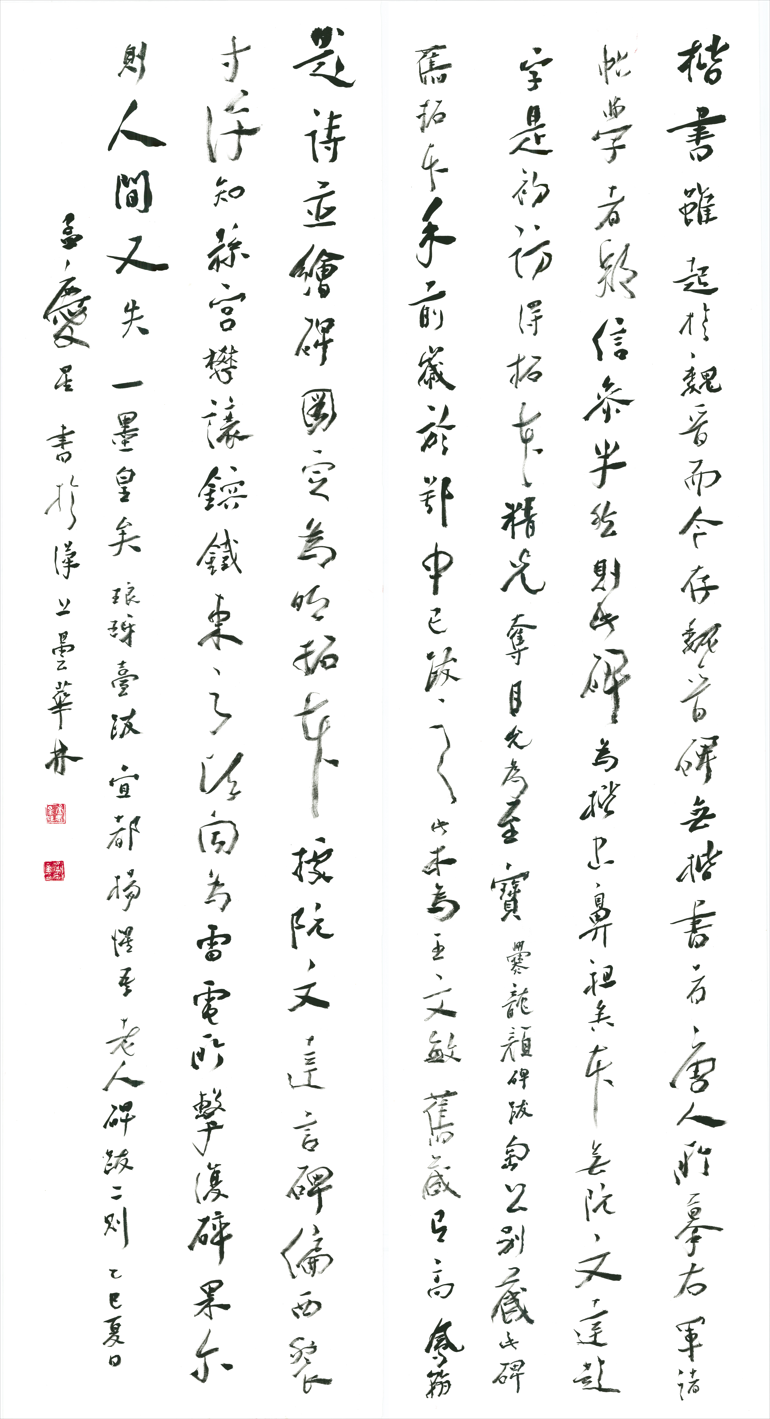 楷書雖起於魏晉而今存魏晉碑無楷書者唐人所摹右軍諸
帖學者疑信參半然則此碑為楷書鼻祖矣本無阮文達題
字是初訪得拓本精光奪目允為至寶爨龍顏碑跋匋公別藏此碑
舊拓本手前歲於鄂中已跋之此本為王文敏舊藏有高
題詩並繪碑圖定為明拓本據阮文達言碑偏西裂
寸許知縣宮懋讓鎔鐵束之陶為雷電所擊復碎果尔
則人間又失一墨皇矣琅琊臺跋宜都楊惺吾老人碑跋二則乙巳夏日
孟慶星書於漢上曇華林